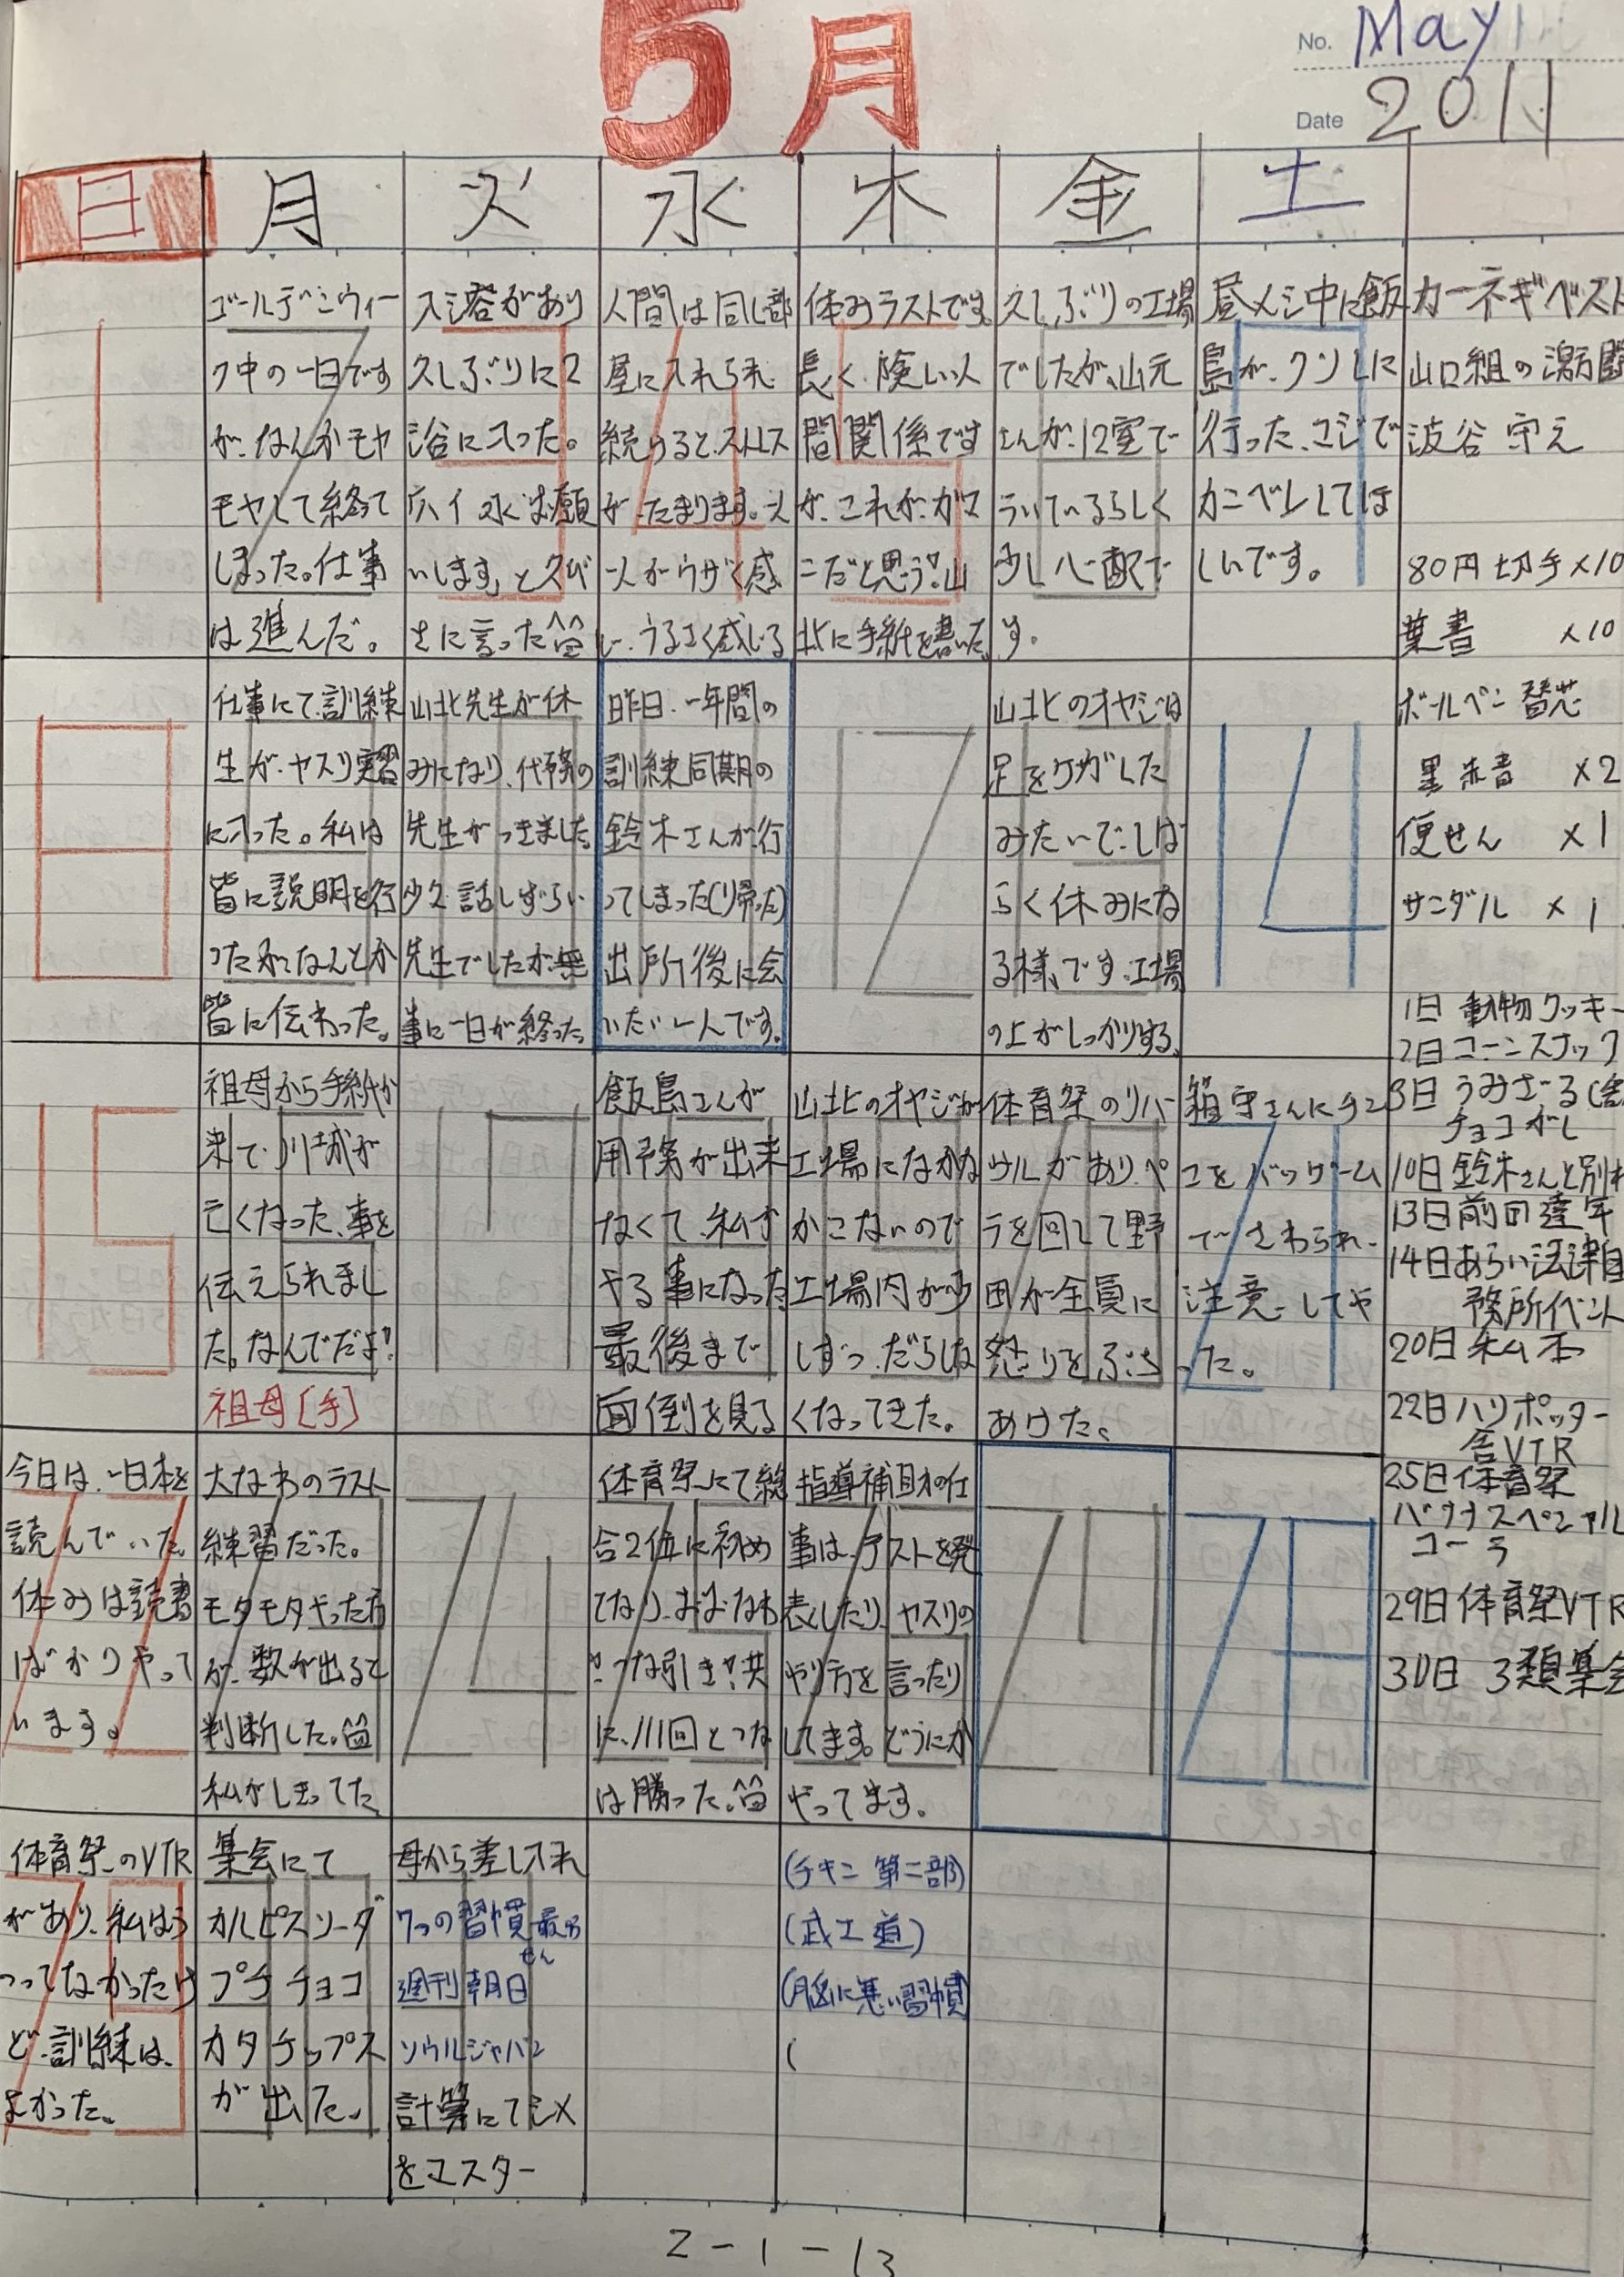 5月
No. May
Date 2011
日 月 火 水 木 金 土
1
2
ゴールデンウィー
ク中の一日です
が、なんかモヤ
モヤして終って
しまった。仕事
は進んだ。
3
入浴があり
久しぶりに2
浴に入った。
いします、と久び
さに言った
4
人間は同じ部
屋に入れられ
続けると、ストレス
がたまります。
一人がウザく感
じ、うるさく感じる
5
休みラストです
長く、険しい人
間関係です
が、これが、ガマ
ンだと思う!!山
北に手紙を書いた。
6
久しぶりの工場
でしたが、山元
さんが、12室で
ういているらしく
少し心配で
す。
7
昼メシ中に飯
島が、クソしに
行った、マジで
カンベンしてほ
しいです。
カーネギベスト
山口組の激闘
波谷守え
80円切手×10
葉書 ×10
ボールペン替芯
黒赤青 ×2
便せん ×1
サンダル ×1
8
9
仕事にて、訓練
生が、ヤスリ実習
に入った。私は
皆に説明を行
ったがなんとか
皆に伝わった。
10
山北先生が休
みになり、代務の
先生がつきました。
少々話しずらい
先生でしたが、無
事に一日が終った。
11
昨日、一年間の
訓練同期の
鈴木さんが、行
ってしまった(リ帰った)
出所後に会
いたい人です。
12
13
山北のオヤジは
足をケガした
みたいで、しば
らく休みにな
る様です、工場
の上がしっかりする。
14
1日 動物クッキー
2日 コーンスナック
8日 うみざる
チョコがし
10日 鈴木さんと別れ
13日 前回達年
14日 あらい法津自
務所イベント
20日 私本
22日 ハリポッター
舎VTR
25日 体育祭
バナナスペシャル
コーラ
29日 体育祭VTR
30日 3類集会
15
16
祖母から手紙が
来て、川城が
亡くなった、事を
伝えられまし
た。なんでだよ!!
祖母[手]
17
18
飯島さんが
用務が出来
なくて、私が
やる事になった
最後まで
面倒を見る
19
山北のオヤジが
工場になかな
かこないので
工場内が少
しずつ、だらしな
くなってきた。
20
体育祭のリハー
サルがあり、ペ
ラを回して野
田が全員に
怒りをぶち
あけた。
21
でさわられ、
注意してや
った。
22
今日は、一日本を
読んでいた。
休みは読書
ばかりやって
います。
23
大なわのラスト
練習だった。
モタモタやった方
が、数が出ると
判断した。
私がしきってた。
24
25
体育祭にて総
合2位に初め
てなり、おおなわ
、つな引き!!共
に、111回とつな
は勝った。
26
指導補助の仕
事は、テストを発
表したり、ヤスリの
やり方を言ったり
してます。どうにか
やってます。
27
28
29
体育祭のVTR
があり、私はう
つってなかったけ
ど、訓練は、
よかった。
30
集会にて
カルピスソーダ
プチチョコ
カタチップス
が出た。
31
母から差し入れ
7つの習慣 最
週刊朝日
ソウルジャパン
計算にてシメ
をマスター
(チキン 第二部)
(武士道)
(脳に悪い習慣
(
2-1-13